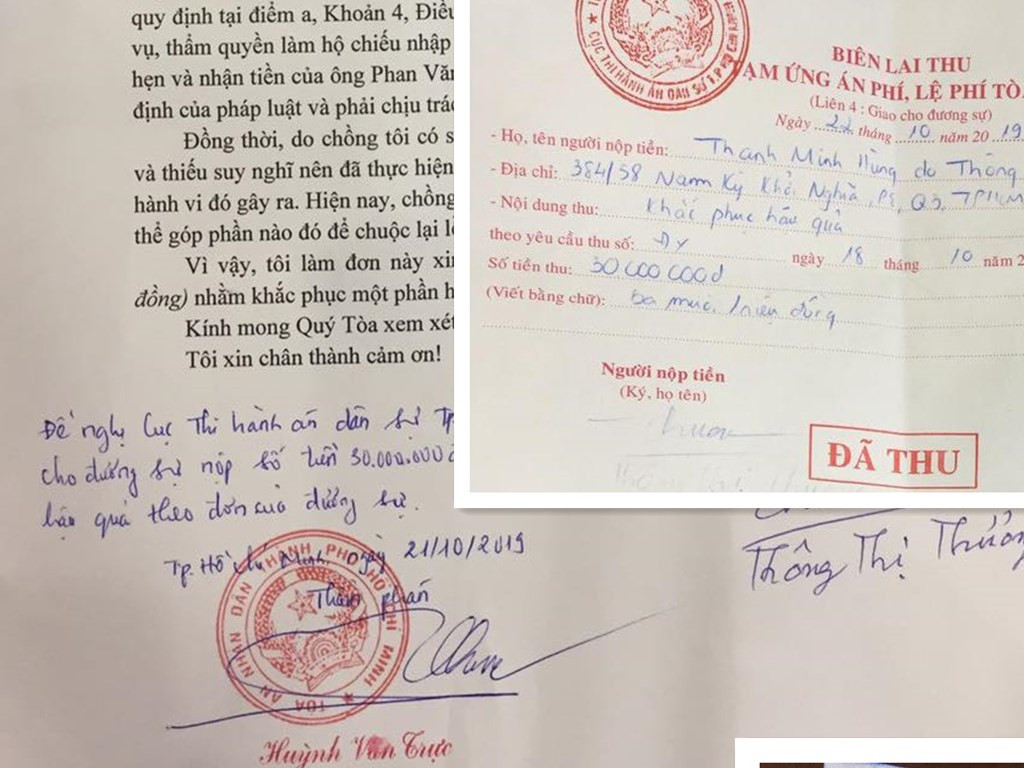 quy định tại điểm a, Khoản 4, Điều
vụ, thẩm quyền làm hộ chiếu nhập
hẹn và nhận tiền của ông Phan Văn
định của pháp luật và phải chịu trác
Đồng thời, do chồng tôi có s
và thiếu suy nghĩ nên đã thực hiện
hành vi đó gây ra. Hiện nay, chồng
thể góp phần nào đó để chuộc lại l
Vì vậy, tôi làm đơn này xin
đồng) nhằm khắc phục một phần h
Kính mong Quý Tòa xem xét
Tôi xin chân thành cảm ơn!
Đề nghị Cục Thi hành án dân sự Tp
cho đương sự nộp số tiền 30.000.000đ
hậu quả theo đơn của đương sự.
Tp. Hồ Chí Minh ngày 21/10/2019
Thẩm phán
TÒA ÁN NHÂN DÂN THÀNH PHỐ HỒ CHÍ MINH
Huỳnh Văn Trực
CỤC THI HÀNH ÁN DÂN SỰ T.P
BIÊN LAI THU
ẠM ỨNG ÁN PHÍ, LỆ PHÍ TÒ
(Liên 4 : Giao cho đương sự)
Ngày 22 tháng 10 năm 2019
- Họ, tên người nộp tiền: Thanh Minh Hùng do Thông
- Địa chỉ: 384/58 Nam Kỳ Khởi Nghĩa, P8, Q3, TPHCM
- Nội dung thu: Khắc phục hậu quả
theo yêu cầu thu số: ngày 18 tháng 10 năm 2
Số tiền thu: 30 000 000đ
(Viết bằng chữ): Ba mươi triệu đồng
Người nộp tiền
(Ký, họ tên)
ĐÃ THU
Thông Thị Thương